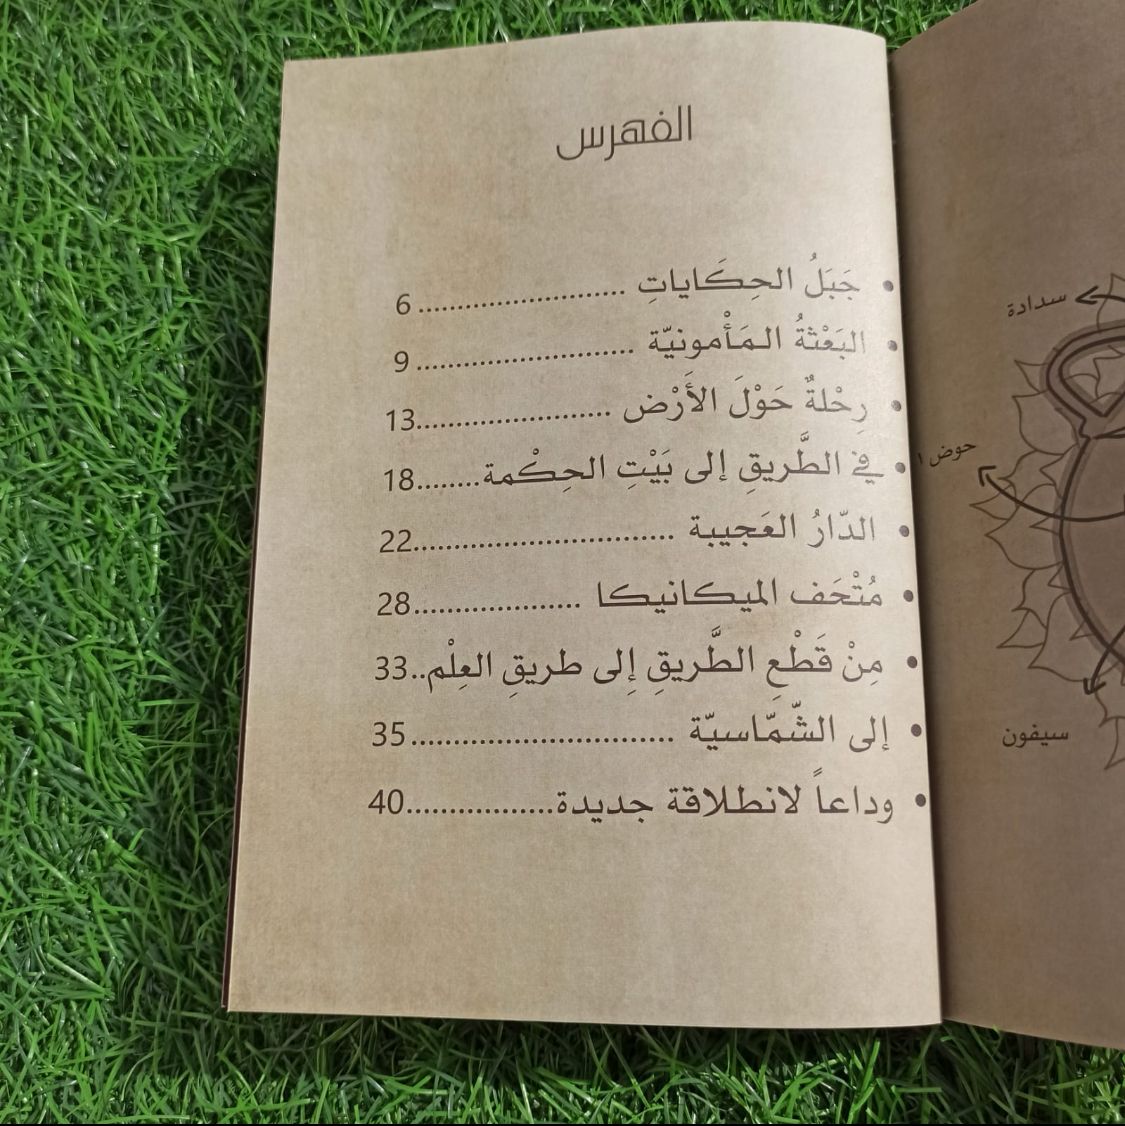 الفهرس
• جَبَلُ الحِكَاياتِ ......................... 6
• البَعْثةُ المَأْمونيّة .......................... 9
• رِحْلةٌ حَوْلَ الأَرْض ........................13
• في الطَّريقِ إلى بَيْتِ الحِكْمة........18
• الدّارُ العَجيبة ................................22
• مُتْحَف الميكانيكا ....................28
• مِنْ قَطْعِ الطَّريقِ إِلى طريقِ العِلْم..33
• إلى الشّمّاسيّة ................................35
• وداعاً لانطلاقة جديدة..................40
سدادة
حوض ١
سيفون